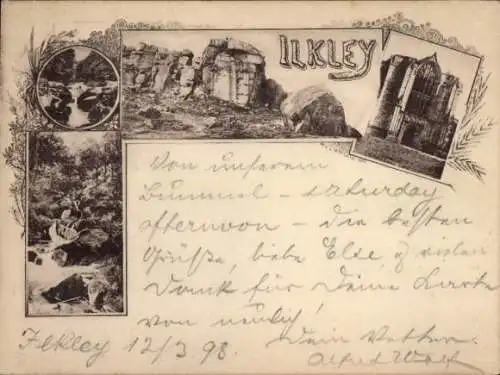 ILKLEY
Von unserem
Bummel - saturday
afternoon - die besten
Grüße, liebe Else & vielen
Dank für Deine Karte
von neulich!
Dein Vetter
Ilkley 12/3 98. Alfred